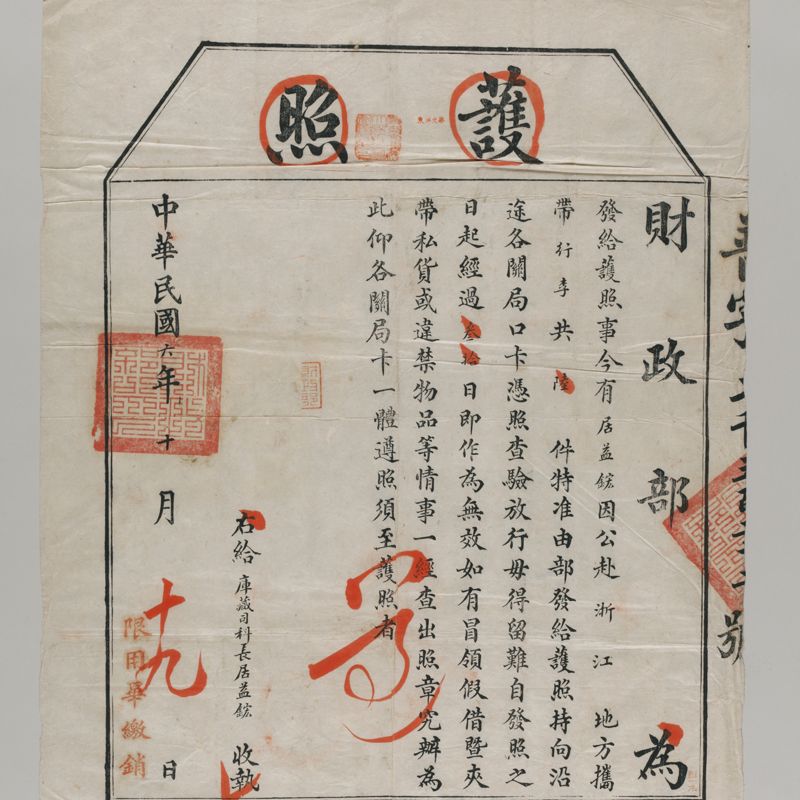 護照
財政部為
發給護照事今有居益鋐因公赴浙江地方攜
帶行李共陸件特准由部發給護照持向沿
途各關局口卡憑照查驗放行毋得留難自發照之
日起經過叁拾日即作為無效如有冒領假借暨夾
帶私貨或違禁物品等情事一經查出照章究辦為
此仰各關局卡一體遵照須至護照者
右給庫藏司科長居益鋐收執
中華民國六年十月十九日
限用畢繳銷